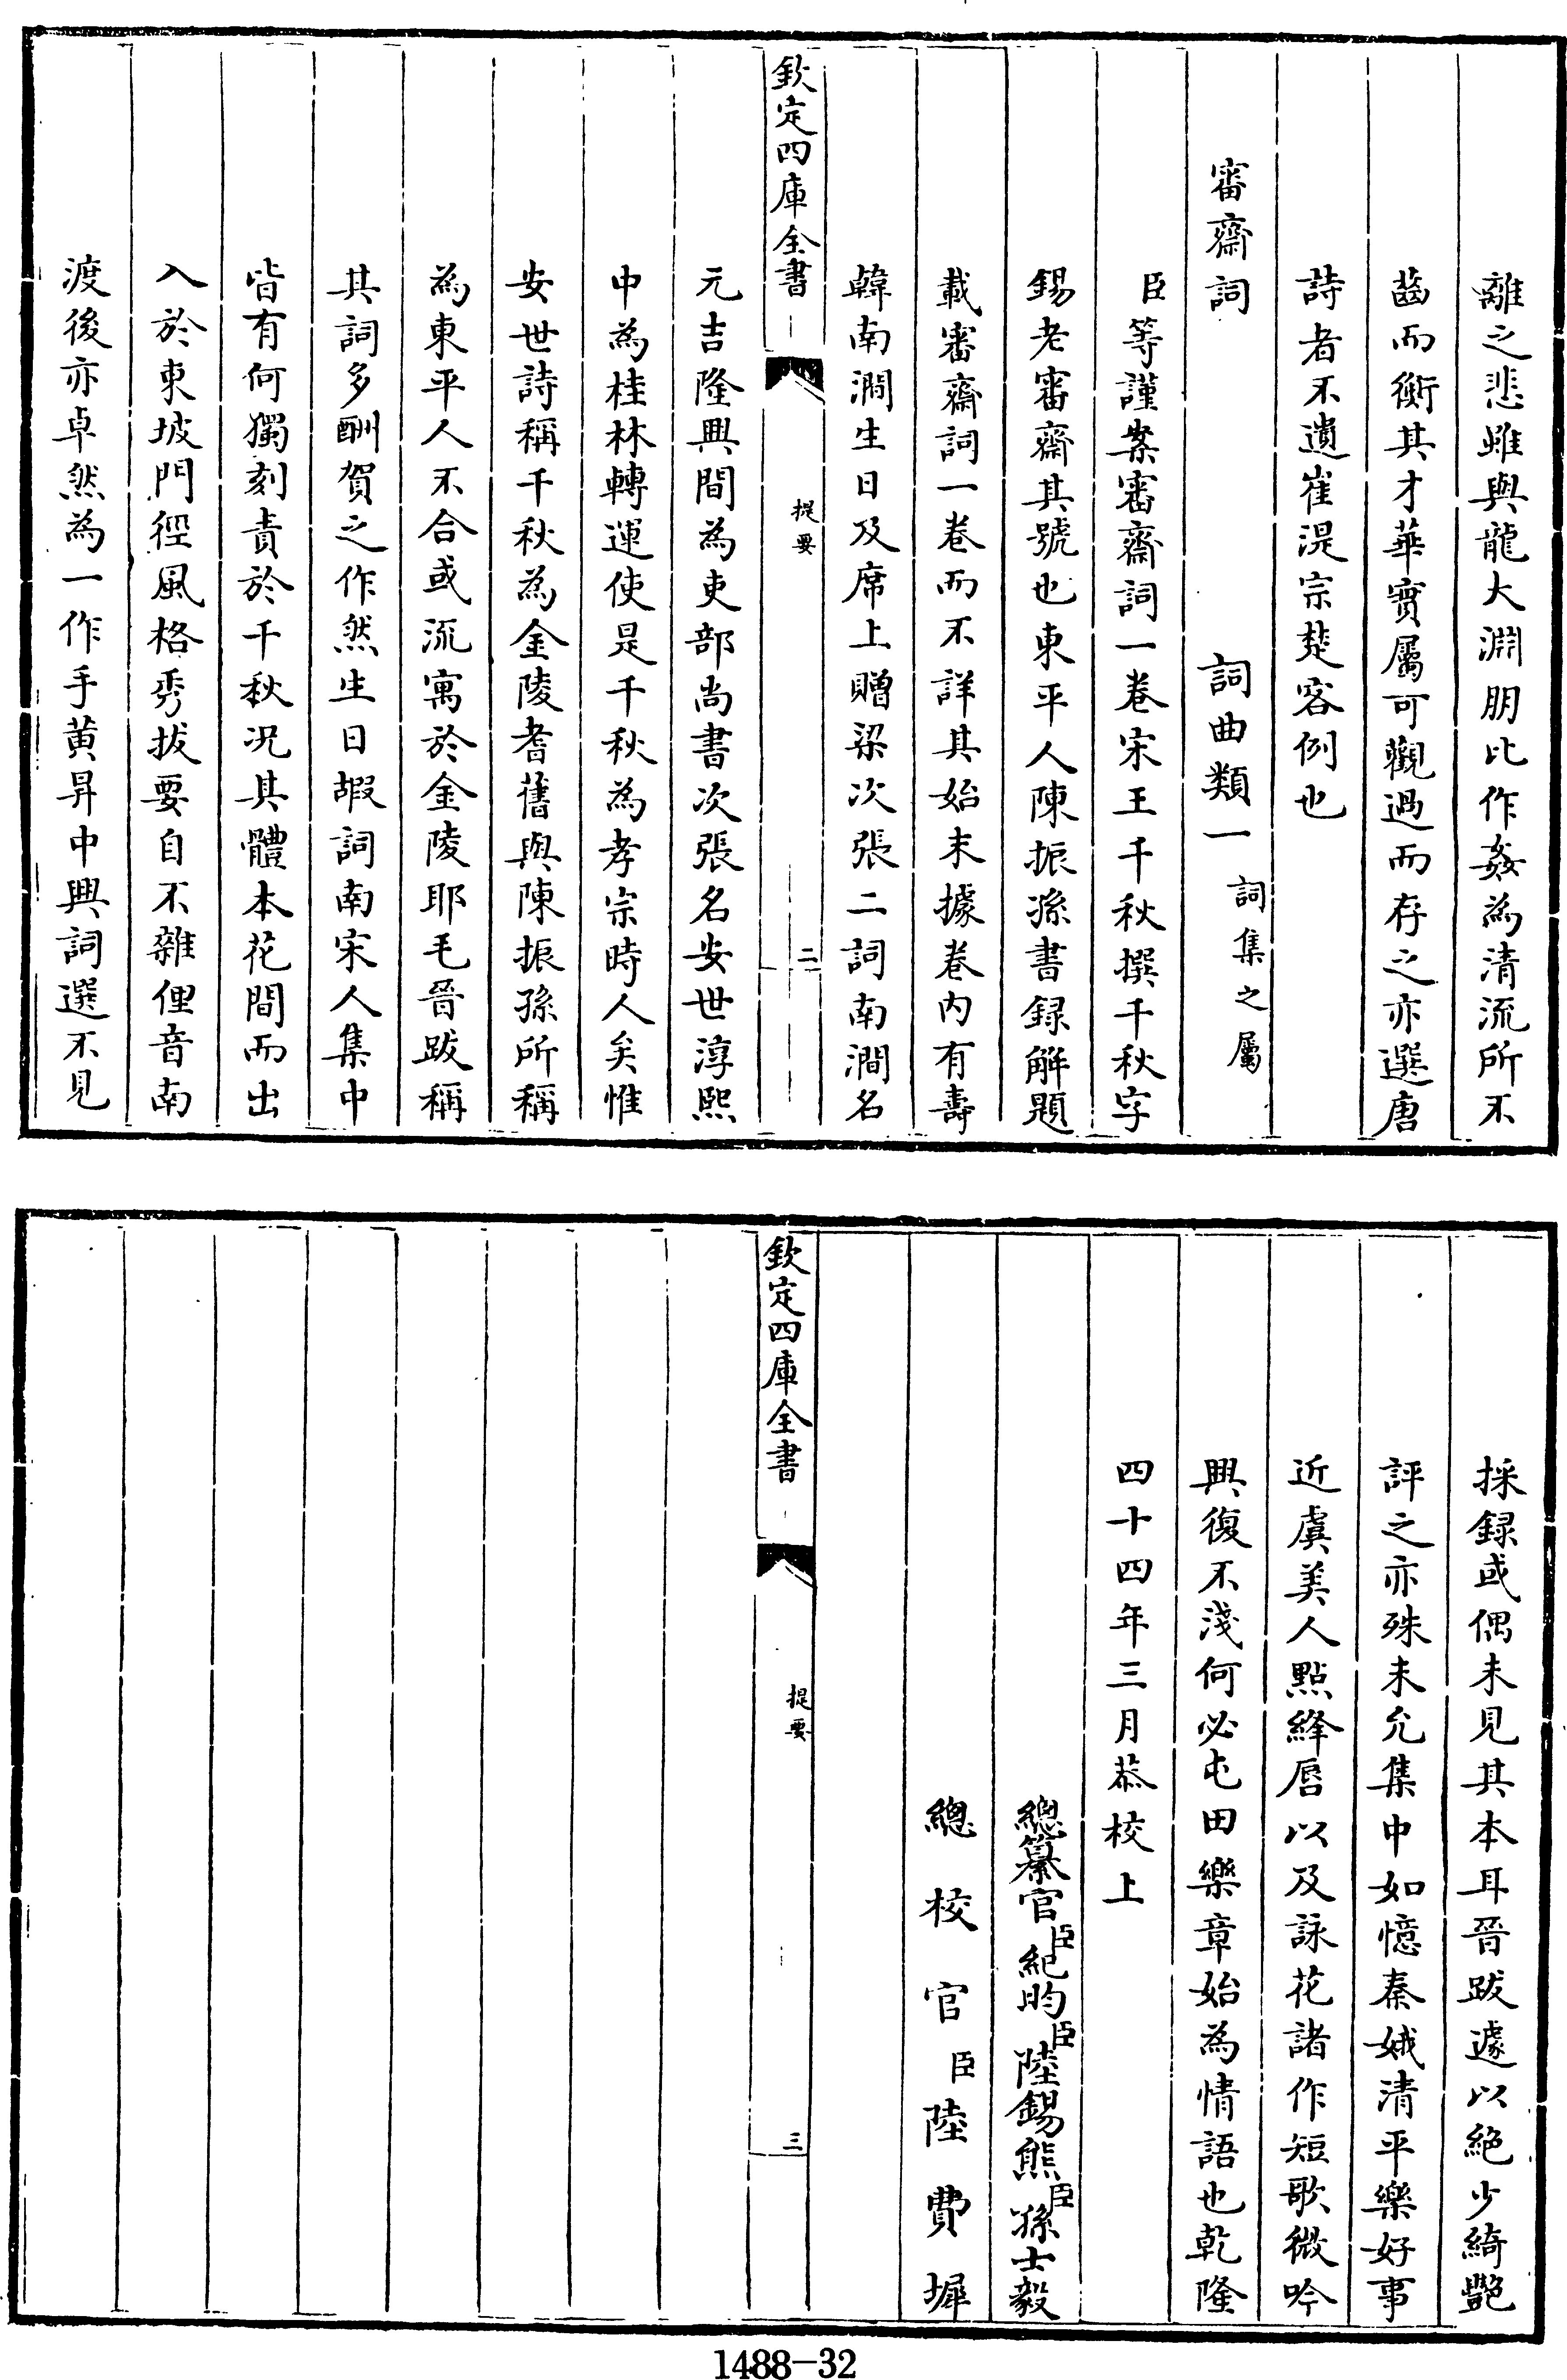 離之悲雖與龍大淵朋比作姦為清流所不
齒而衡其才華實屬可觀過而存之亦選唐
詩者不遺崔湜宗楚客例也
審齋詞　詞曲類一　詞集之屬
臣等謹案審齋詞一卷宋王千秋撰千秋字
錫老審齋其號也東平人陳振孫書録解題
載審齋詞一卷而不詳其始末據卷内有壽
韓南澗生日及席上贈梁次張二詞南澗名
欽定四庫全書
提要
二
元吉隆興間為吏部尚書次張名安世淳熙
中為桂林轉運使是千秋為孝宗時人矣惟
安世詩稱千秋為金陵耆舊與陳振孫所稱
為東平人不合或流寓於金陵耶毛晉跋稱
其詞多酬賀之作然生日嘏詞南宋人集中
皆有何獨刻責於千秋況其體本花間而出
入於東坡門徑風格秀拔要自不雜俚音南
渡後亦卓然為一作手黄昇中興詞選不見
採録或偶未見其本耳晉跋遽以絶少綺艷
評之亦殊未允集中如憶秦娥清平樂好事
近虞美人點絳唇以及詠花諸作短歌微吟
興復不淺何必屯田樂章始為情語也乾隆
四十四年三月恭校上
總纂官臣紀昀臣陸錫熊臣孫士毅
總校官臣陸費墀
欽定四庫全書
提要
三
1488-32